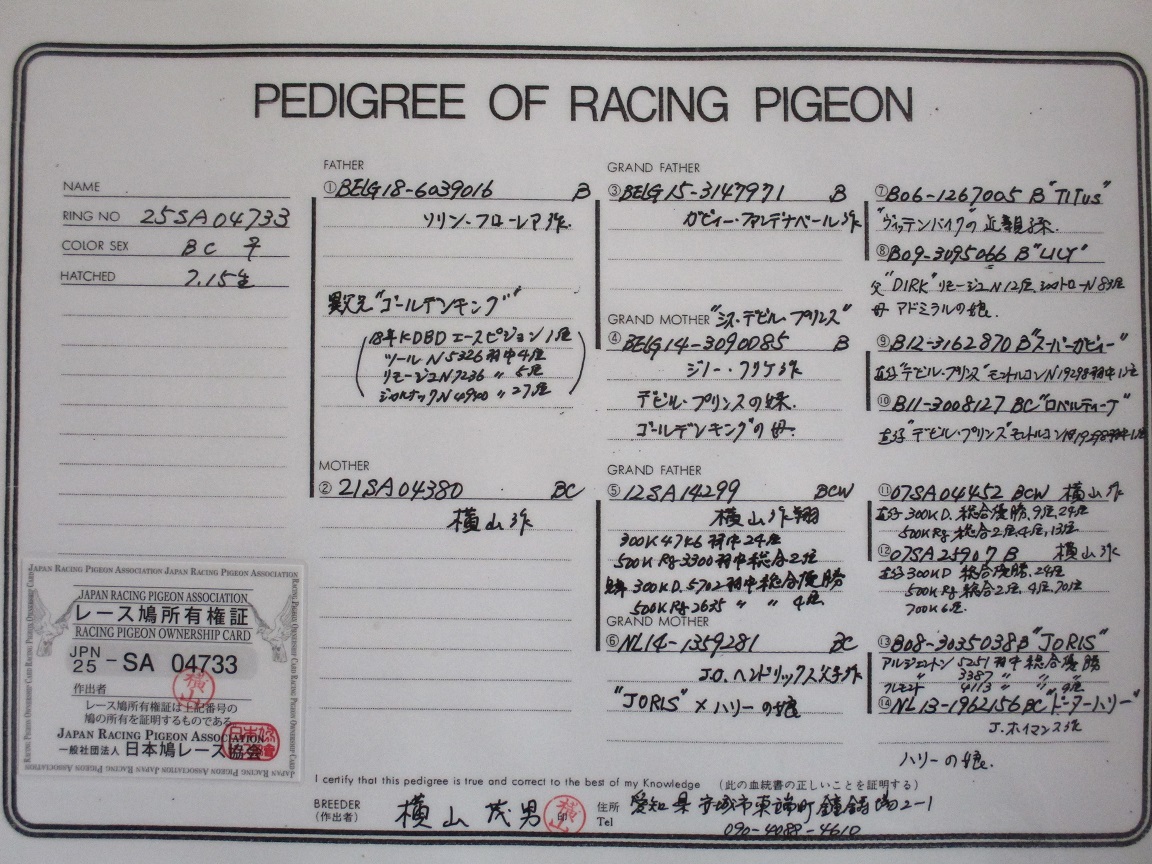 PEDIGREE OF RACING PIGEON
NAME
RING NO 25SA04733
COLOR SEX BC ♀
HATCHED 7.15生
FATHER
①BELG18-6039016 B
ソリン・フローレア作.
異父兄"ゴールデンキング"
18年KDBD エースピジョン1位
ツールN 5326羽中4位
リモージュN7236 〃 5位
〃 27位
MOTHER
②21SA04380 BC
横山作
GRAND FATHER
③BELG15-3147971 B
ガビィ・ファンデナベール作
GRAND MOTHER "ミス・デビル・プリンス"
④BELG14-3090085 B
ジノ・クリケ作
デビル・プリンスの妹.
ゴールデンキングの母.
GRAND FATHER
⑤12SA14299 BCW
横山作翔
300K 4746羽中24位
500K Rg 3300羽中総合2位
300KD.5702羽中総合優勝
500K Rg 2635 〃 〃 4位
GRAND MOTHER
⑥NL14-1359281 BC
J.O.ヘンドリックス父子作
"JORIS"×ハリーの娘
⑦B06-1267005 B "TITUS"
"ヴィッテンバイク"の近親孫.
⑧B09-3095066 B "LILY"
父"DIRK"リモージュN12位.
母 アドミラルの娘.
⑨B12-3162870 B"スーパーガビィー"
直仔"デビル・プリンス"モントルソンN19298羽中1位
⑩B11-3008127 BC "ロベルティーナ"
直仔"デビル・プリンス"
⑪07SA04452 BCW 横山作
直仔 300KD.総合優勝、9位、24位
500K Rg 総合2位、4位、13位
⑫07SA25907 B 横山作
直仔300KD 総合優勝、24位
500K Rg 総合2位、4位、70位
700K6位.
⑬B08-3035038B "JORIS"
アルジェントン 5251羽中 総合優勝
〃 3387 〃 〃
4113 〃 〃 9位
⑭NL13-1962156BC"ドーターハリー"
J.ホイマンス作
ハリーの娘.
JAPAN RACING PIGEON ASSOCIATION JAPAN RACING PIGEON ASSOCIATION
JAPAN RACING PIGEON ASSOCIATION
レース鳩所有権証
RACING PIGEON OWNERSHIP CARD
JPN
25 - SA 04733
作出者
横山
レース鳩所有権証は上記番号の
鳩の所有を証明するものである。
JAPAN RACING PIGEON ASSOCIATION
一般社団法人 日本鳩レース協会
I certify that this pedigree is true and correct to the best of my Knowledge (此の血統書の正しいことを証明する)
BREEDER
(作出者) 横山 茂男 横山 印
住所 愛知県安城市東端町鐘鋳場2-1
Tel 090-4088-4610